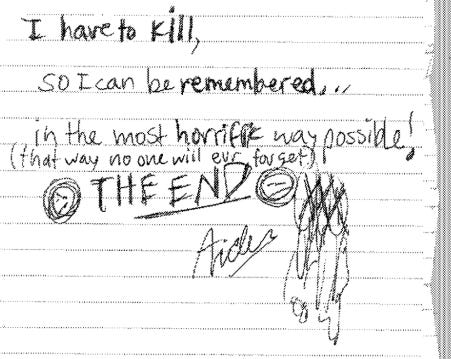 I have to kill,
so I can be remembered...
in the most horrifik way possible!
(that way no one will evr forget)
THE END
Aiden